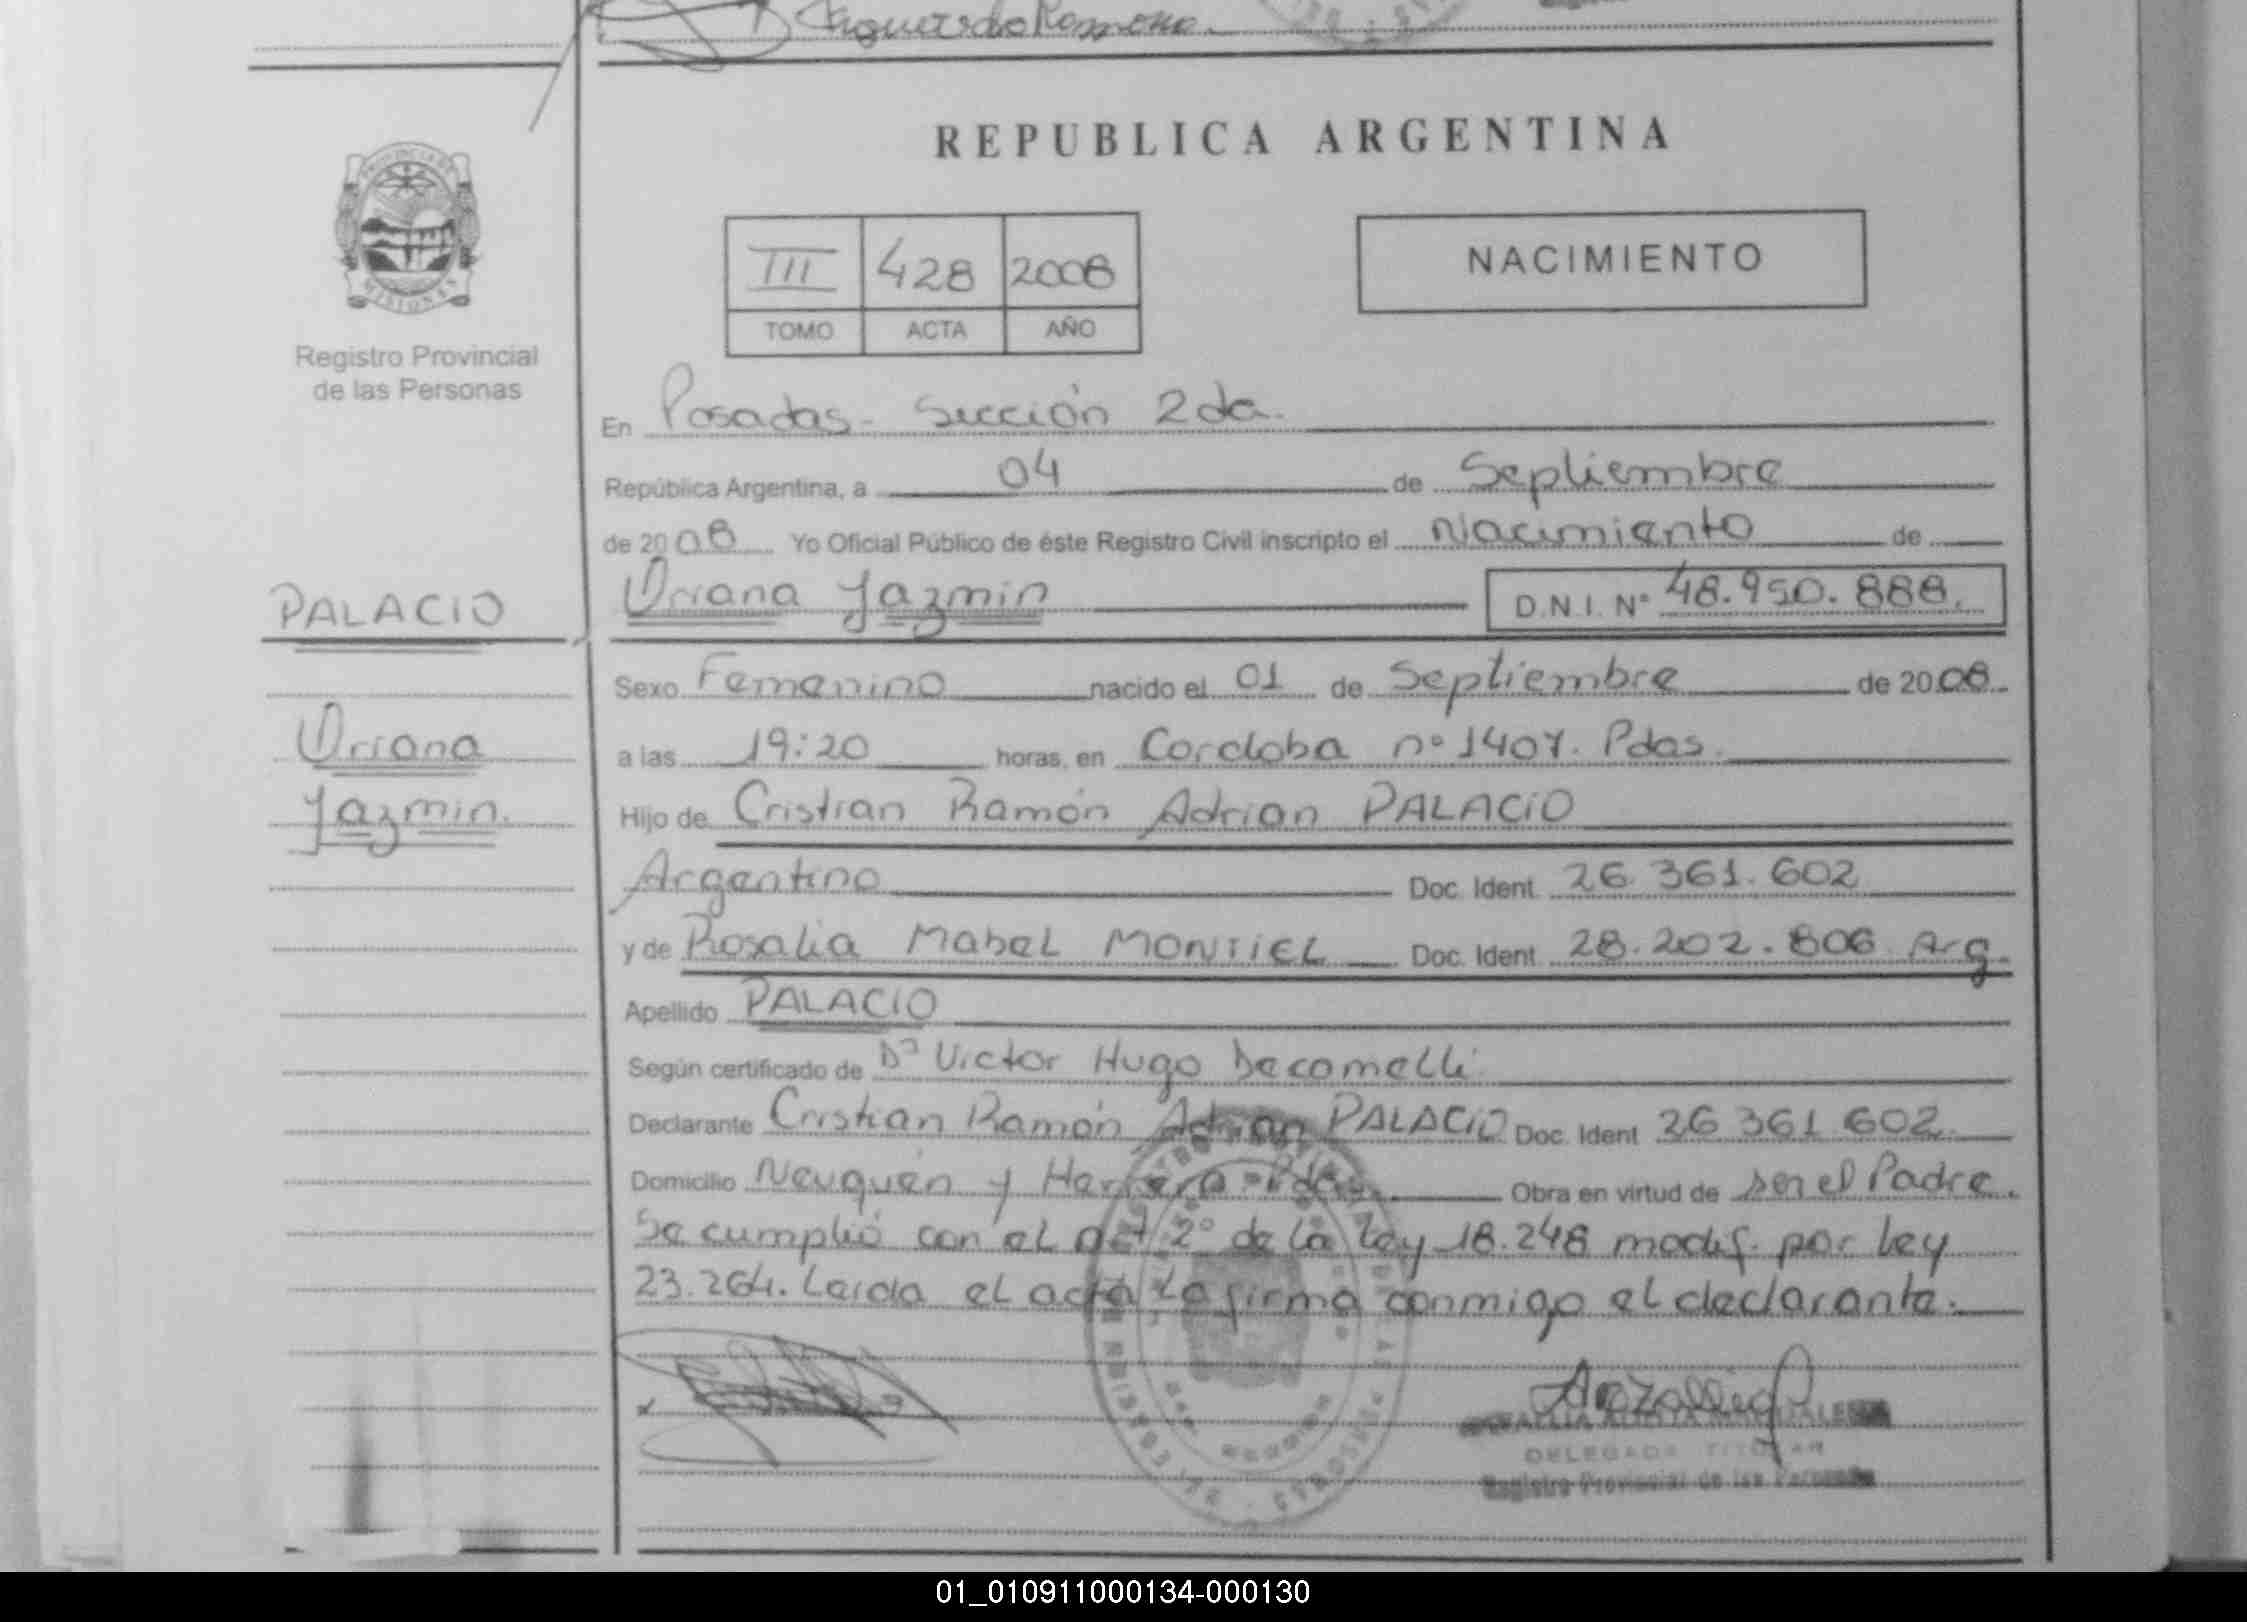 REPUBLICA ARGENTINA
PROVINCIA DE
MISIONES
Registro Provincial
de las Personas
III 428 2008
TOMO ACTA AÑO
NACIMIENTO
En Posadas - Sección 2da.
República Argentina, a 04 de Septiembre
de 2008 Yo Oficial Público de éste Registro Civil inscripto el Nacimiento de
PALACIO
Oriana Yazmin D.N.I. Nº 48.950.888.
Sexo Femenino nacido el 01 de Septiembre de 2008
Oriana
a las 19:20 horas, en Cordoba nº 1407. Pdas.
Yazmin.
Hijo de Cristian Ramón Adrian PALACIO
Argentino Doc. Ident. 26.361.602
y de Rosalia Mabel MONTIEL Doc. Ident. 28.202.806 Arg.
Apellido PALACIO
Según certificado de Dr Victor Hugo
Declarante Cristian Ramón Adrian PALACIO Doc. Ident 26 361 602.
Domicilio Neuquén y Herrera - Pdas. Obra en virtud de ser el Padre.
Se cumplió con el art 2º de la Ley 18.248 modif. por Ley
23.264. Leída el acta la firma conmigo el declarante.
DELEGADA TITULAR
Registro Provincial de las Personas
01_010911000134-000130